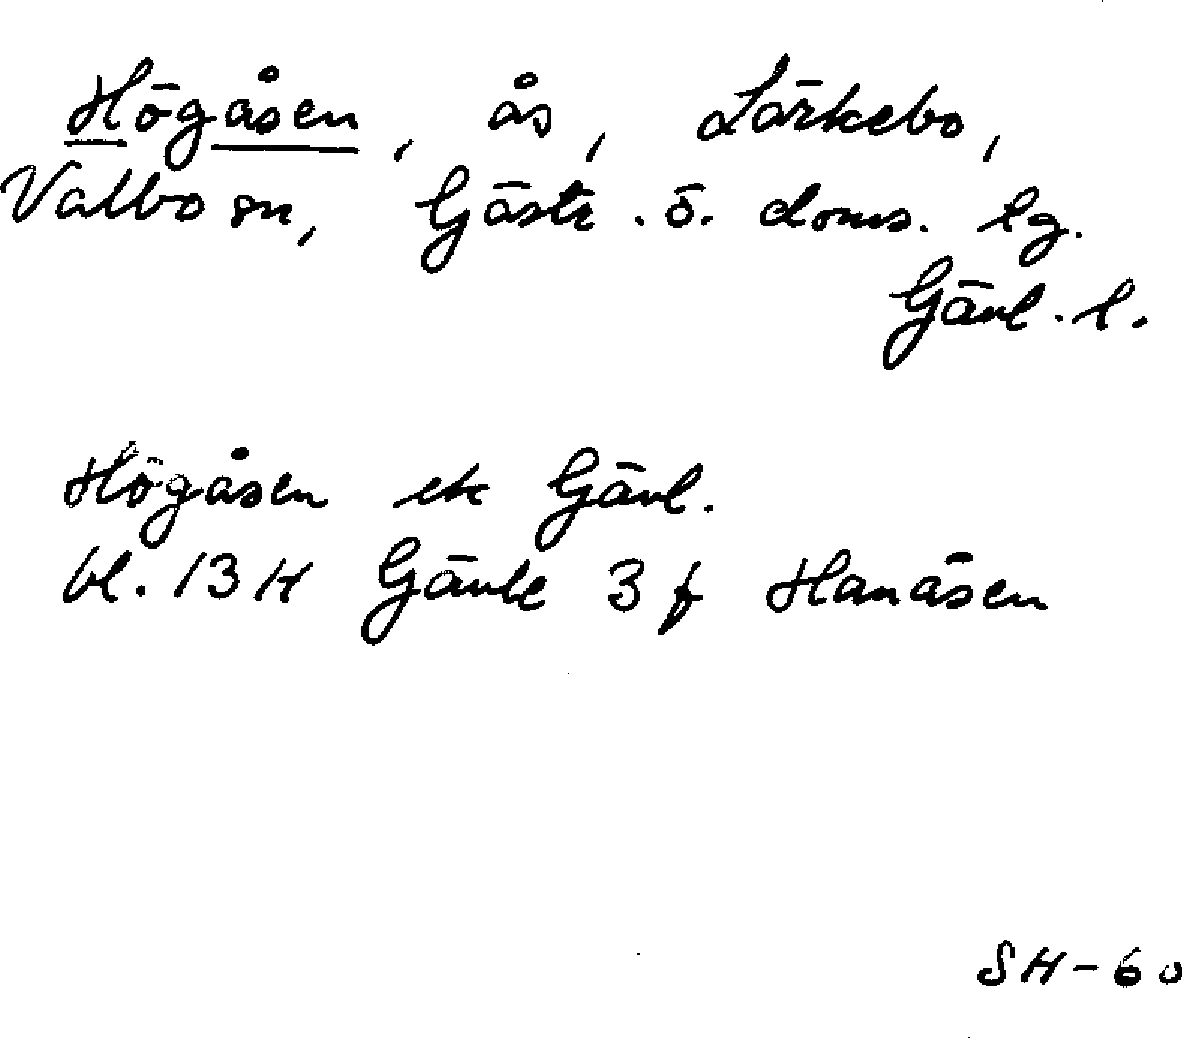 Högåsen, ås, Lärkebo,
Valbo sn, Gästr. ö. doms. lg.
Gävl. l.
Högåsen ek Gävl.
bl. 13 H Gävle 3 f Hanåsen
SH-60